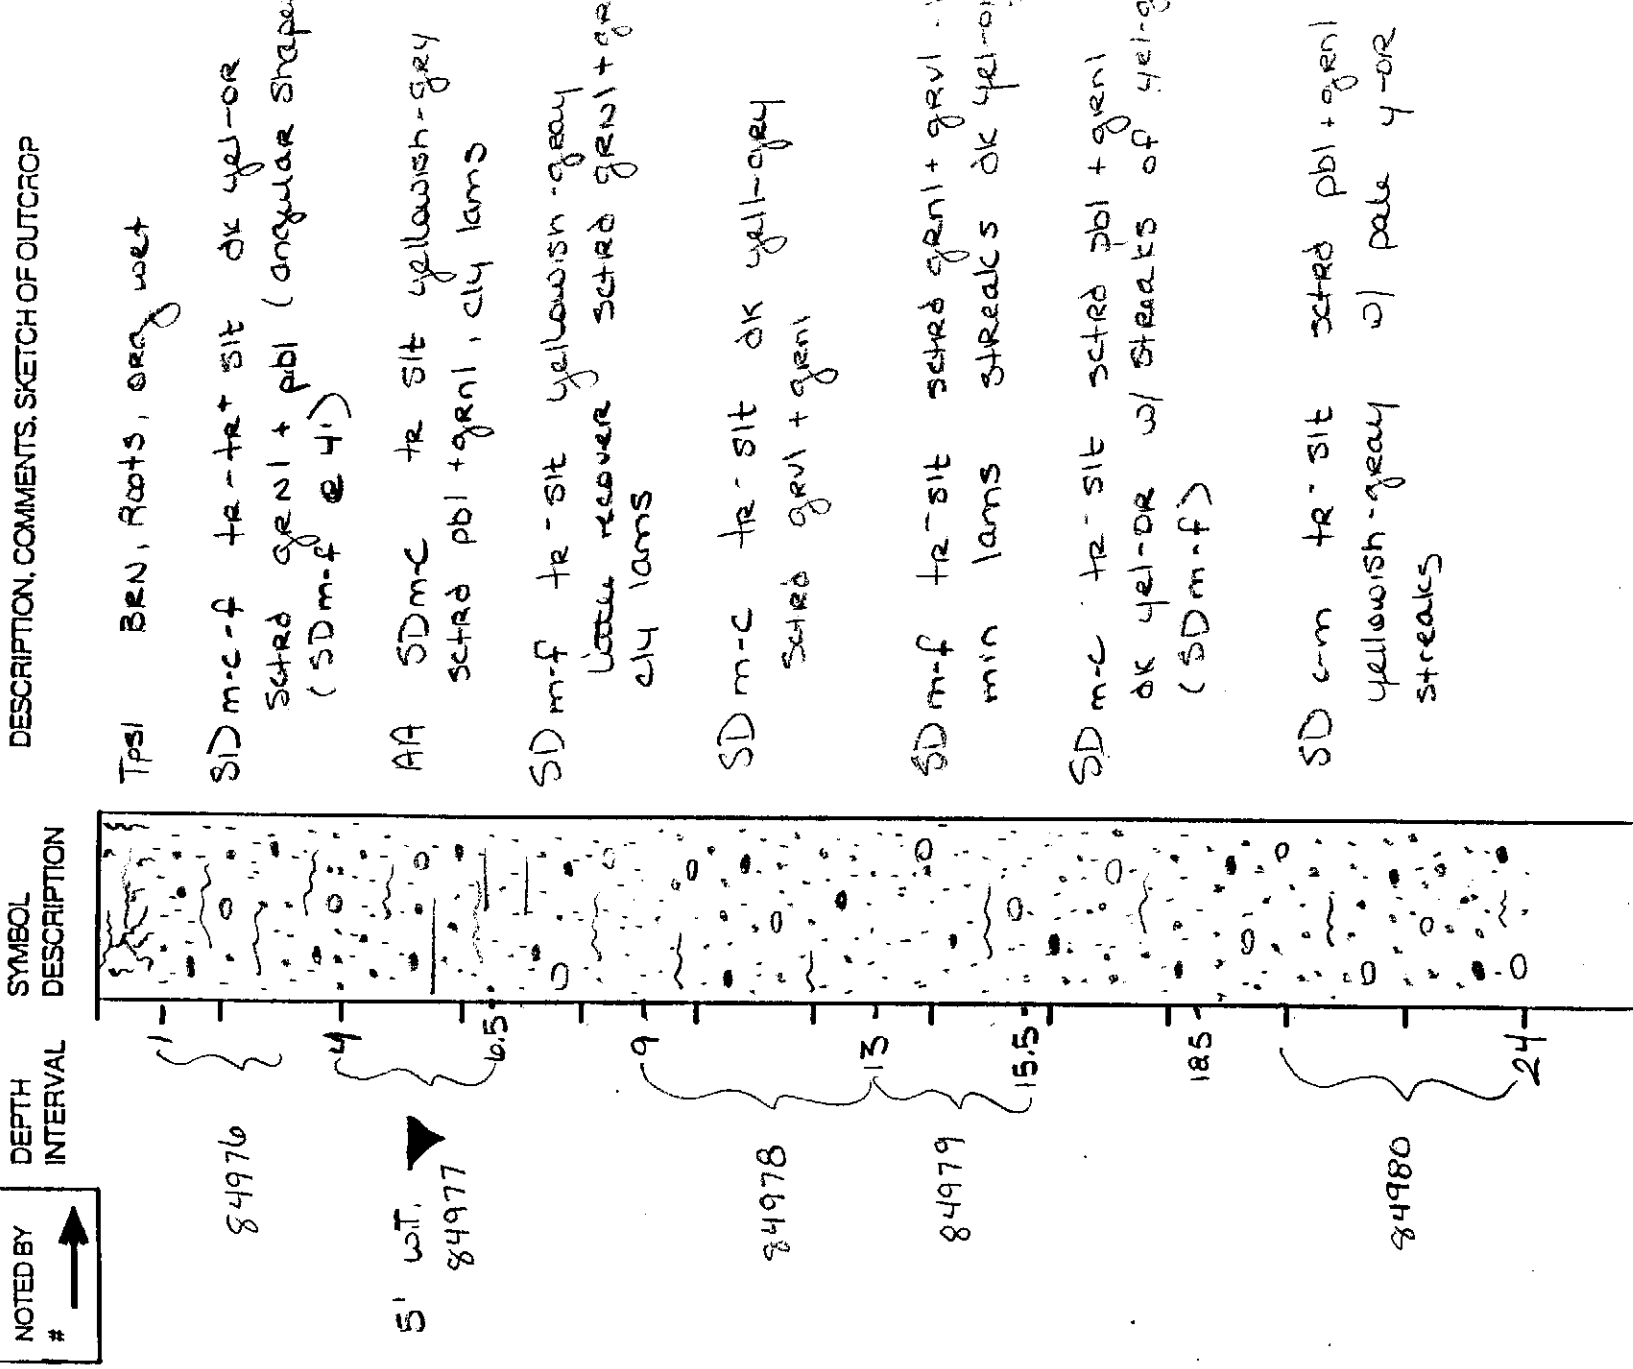 NOTED BY
#
DEPTH
INTERVAL
SYMBOL
DESCRIPTION
DESCRIPTION, COMMENTS, SKETCH OF OUTCROP
1
4
6.5
9
13
15.5
18.5
24
84976
5' W.T.
84977
84978
84979
84980
Tpsl BRN, Roots, org wet
SD m-c-f tr-tr+ slt dk yel-OR
Sctrd GRNl + pbl (angular shape
(SD m-f @ 4')
AA SD m-c tr slt yellowish-gry
sctrd pbl + grnl, cly lams
SD m-f tr-slt yellowish-gray
Little recover sctrd grnl +
cly lams
SD m-c tr-slt dk yell-gry
Sctrd grvl + grnl
SD m-f tr-slt sctrd grnl + grvl
min lams streaks dk yel-or
SD m-c tr-slt sctrd pbl + grnl
dk yel-OR w/ streaks of yel-g
(SD m-f)
SD c-m tr-slt sctrd pbl + grnl
yellowish-gray w/ pale y-OR
streaks